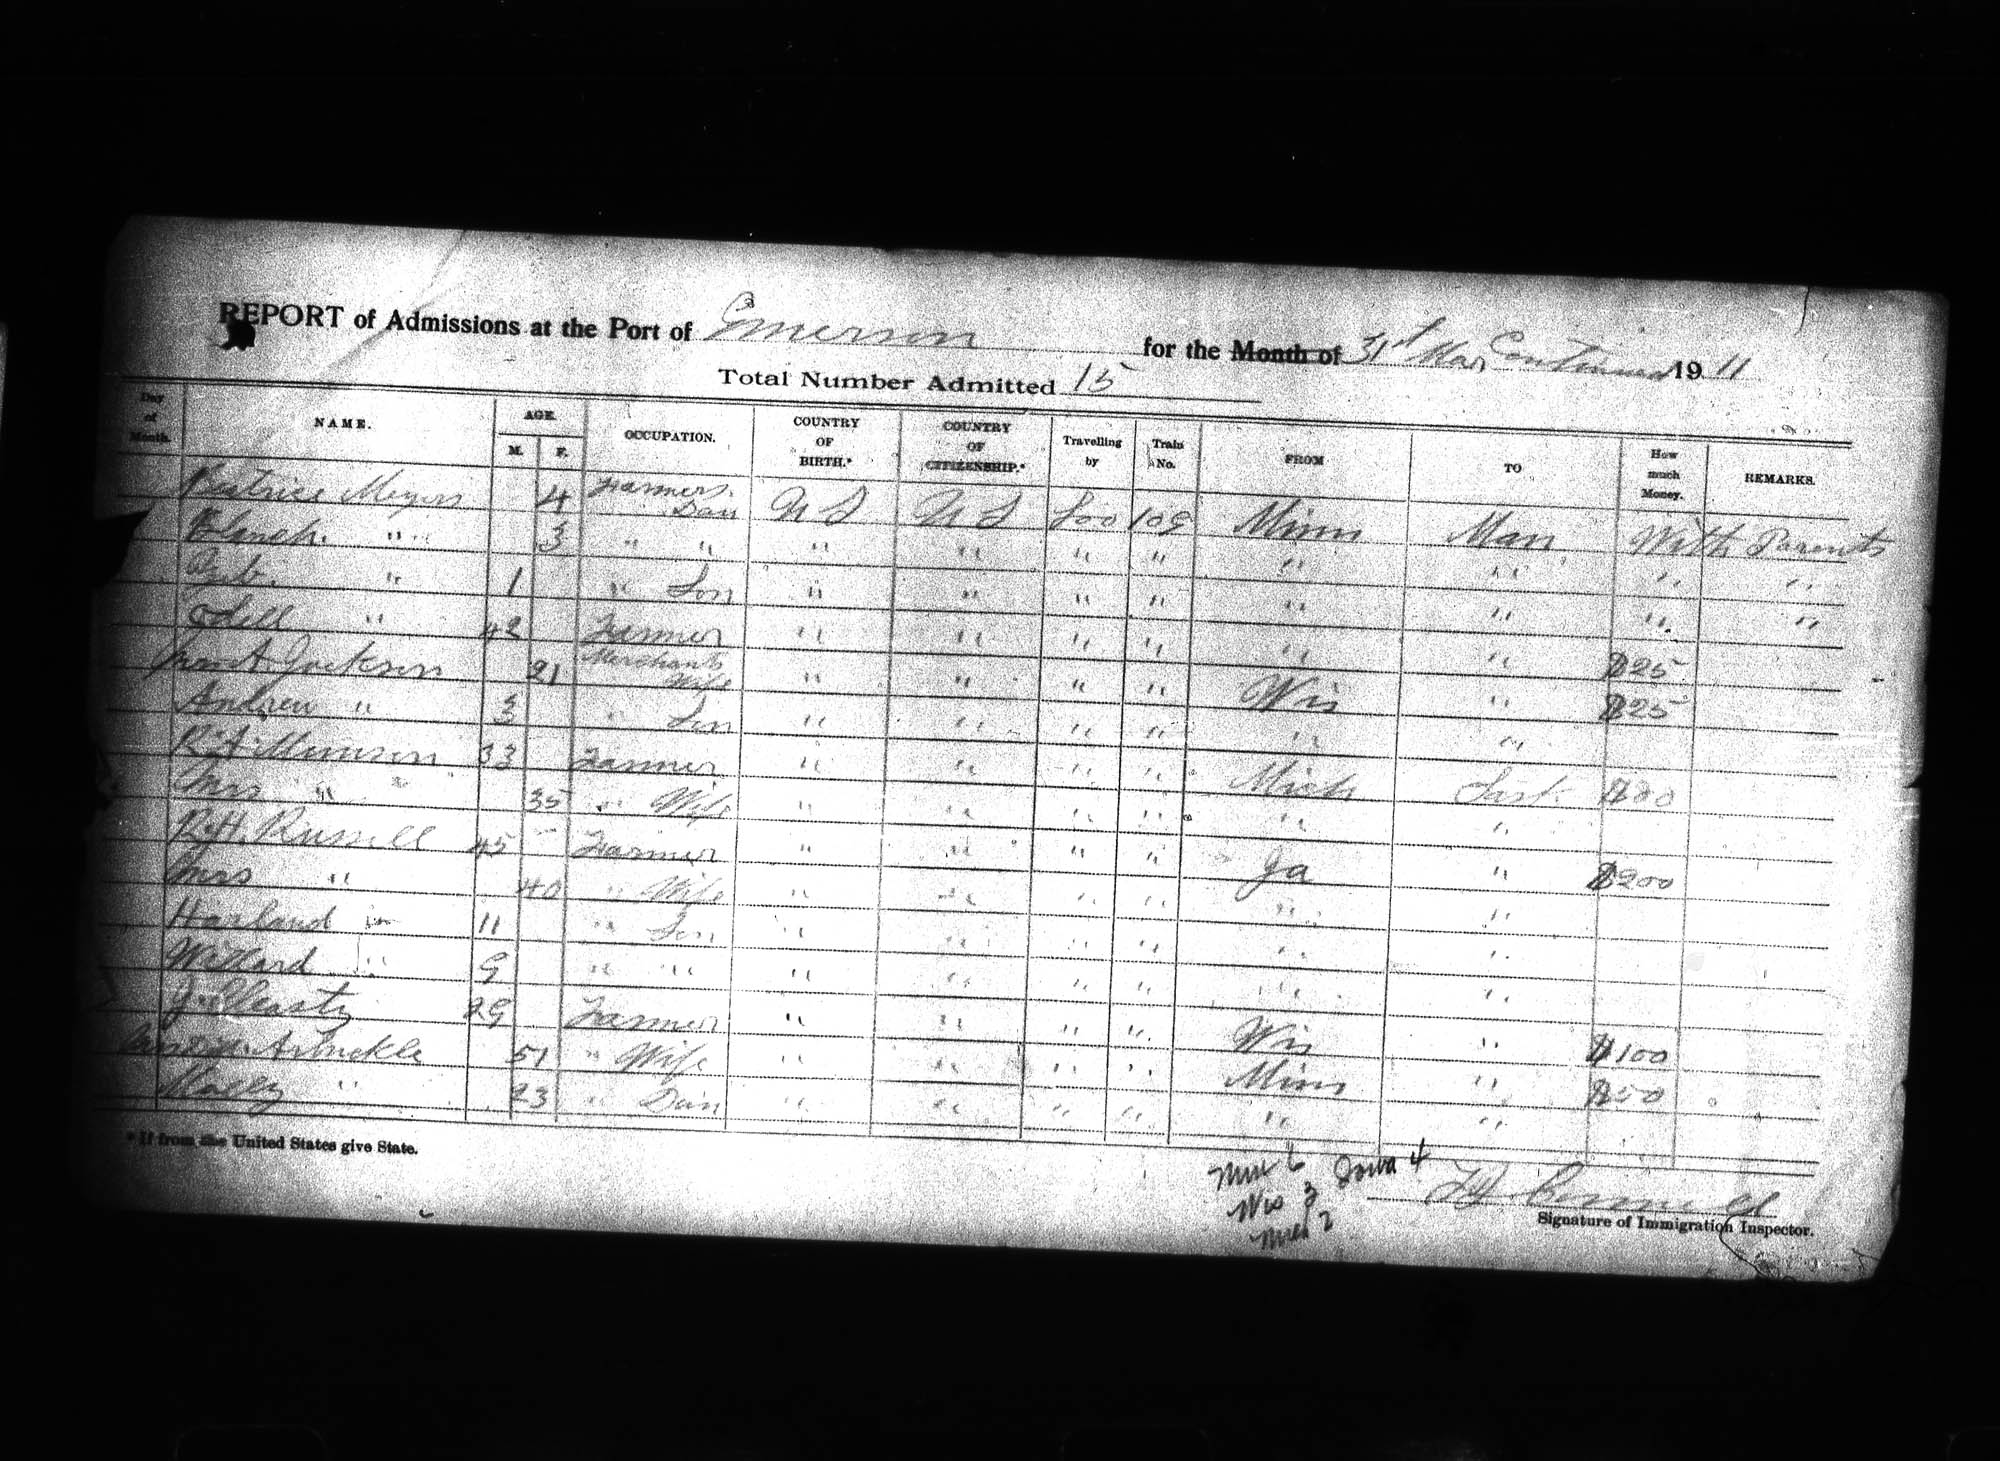 REPORT of Admissions at the Port of Emerson for the Month of 31st Mar Continued 1911
Total Number Admitted 15
Day of Month. NAME. AGE. M. F. OCCUPATION. COUNTRY OF BIRTH.* COUNTRY OF CITIZENSHIP.* Travelling by Train No. FROM TO How much Money. REMARKS.
Beatrice Meyers 4 Farmers Dau U S U S Soo 109 Minn Man With Parents
Blanch " 3 " " " " " " " " " "
" 1 " Son " " " " " " " "
" 42 Farmer " " " " " " $25
Mrs A Jackson 21 Merchants Wife " " " " Wis " $25
Andrew " 3 " Son " " " " " "
R. A. Munson 33 Farmer " " " " Mich Sask
Mrs " " 35 " Wife " " " " " "
R. H. Russell 45 Farmer " " " " Ja " $200
Mrs " 40 " Wife " " " " " "
Harland " 11 " Son " " " " " "
Willard " 9 " " " " " " " "
29 Farmer " " " " Wis " $100
Arbuckle 51 " Wife " " " " Minn " $50
" 23 " Dau " " " " " "
* If from the United States give State.
Minn 6 Iowa 4
Wis 3
Mich 2
Signature of Immigration Inspector.